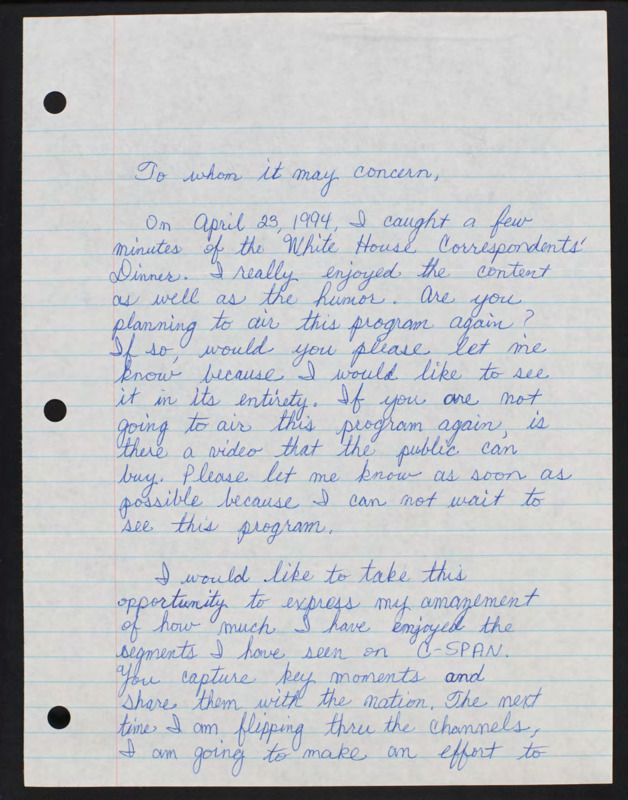 To whom it may concern,
On April 23, 1994, I caught a few
minutes of the White House Correspondents'
Dinner. I really enjoyed the content
as well as the humor. Are you
planning to air this program again?
If so, would you please let me
know because I would like to see
it in its entirety. If you are not
going to air this program again, is
there a video that the public can
buy. Please let me know as soon as
possible because I can not wait to
see this program.
I would like to take this
opportunity to express my amazement
of how much I have enjoyed the
segments I have seen on C-SPAN.
You capture key moments and
share them with the nation. The next
time I am flipping thru the channels,
I am going to make an effort to